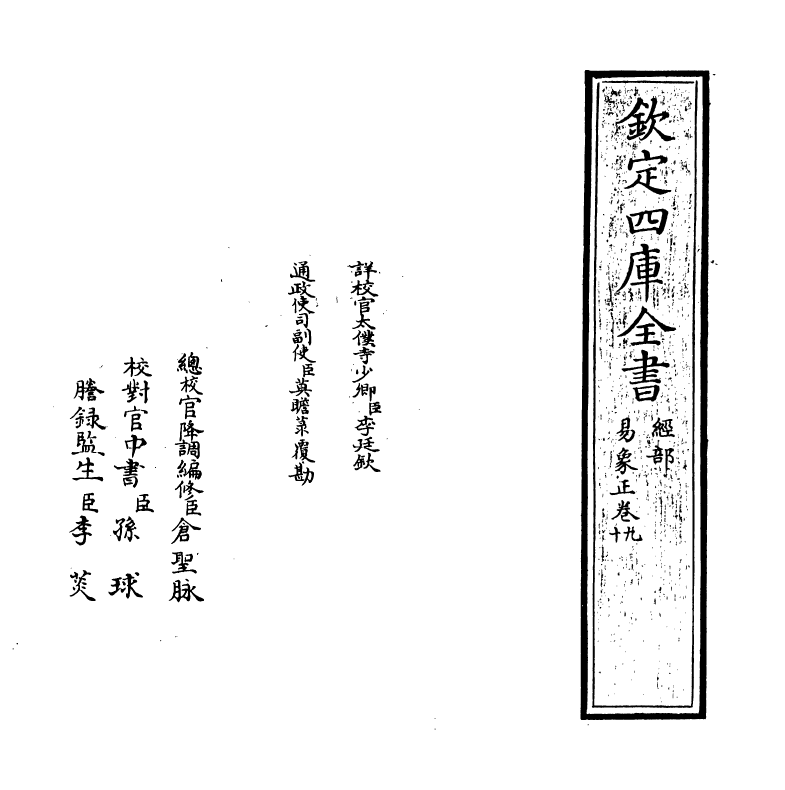 欽定四庫全書
經部
易象正卷九十
詳校官太僕寺少卿臣李廷欽
通政使司副使臣莫瞻菉覆勘
總校官降調編修臣倉聖脉
校對官中書臣孫球
謄錄監生臣李